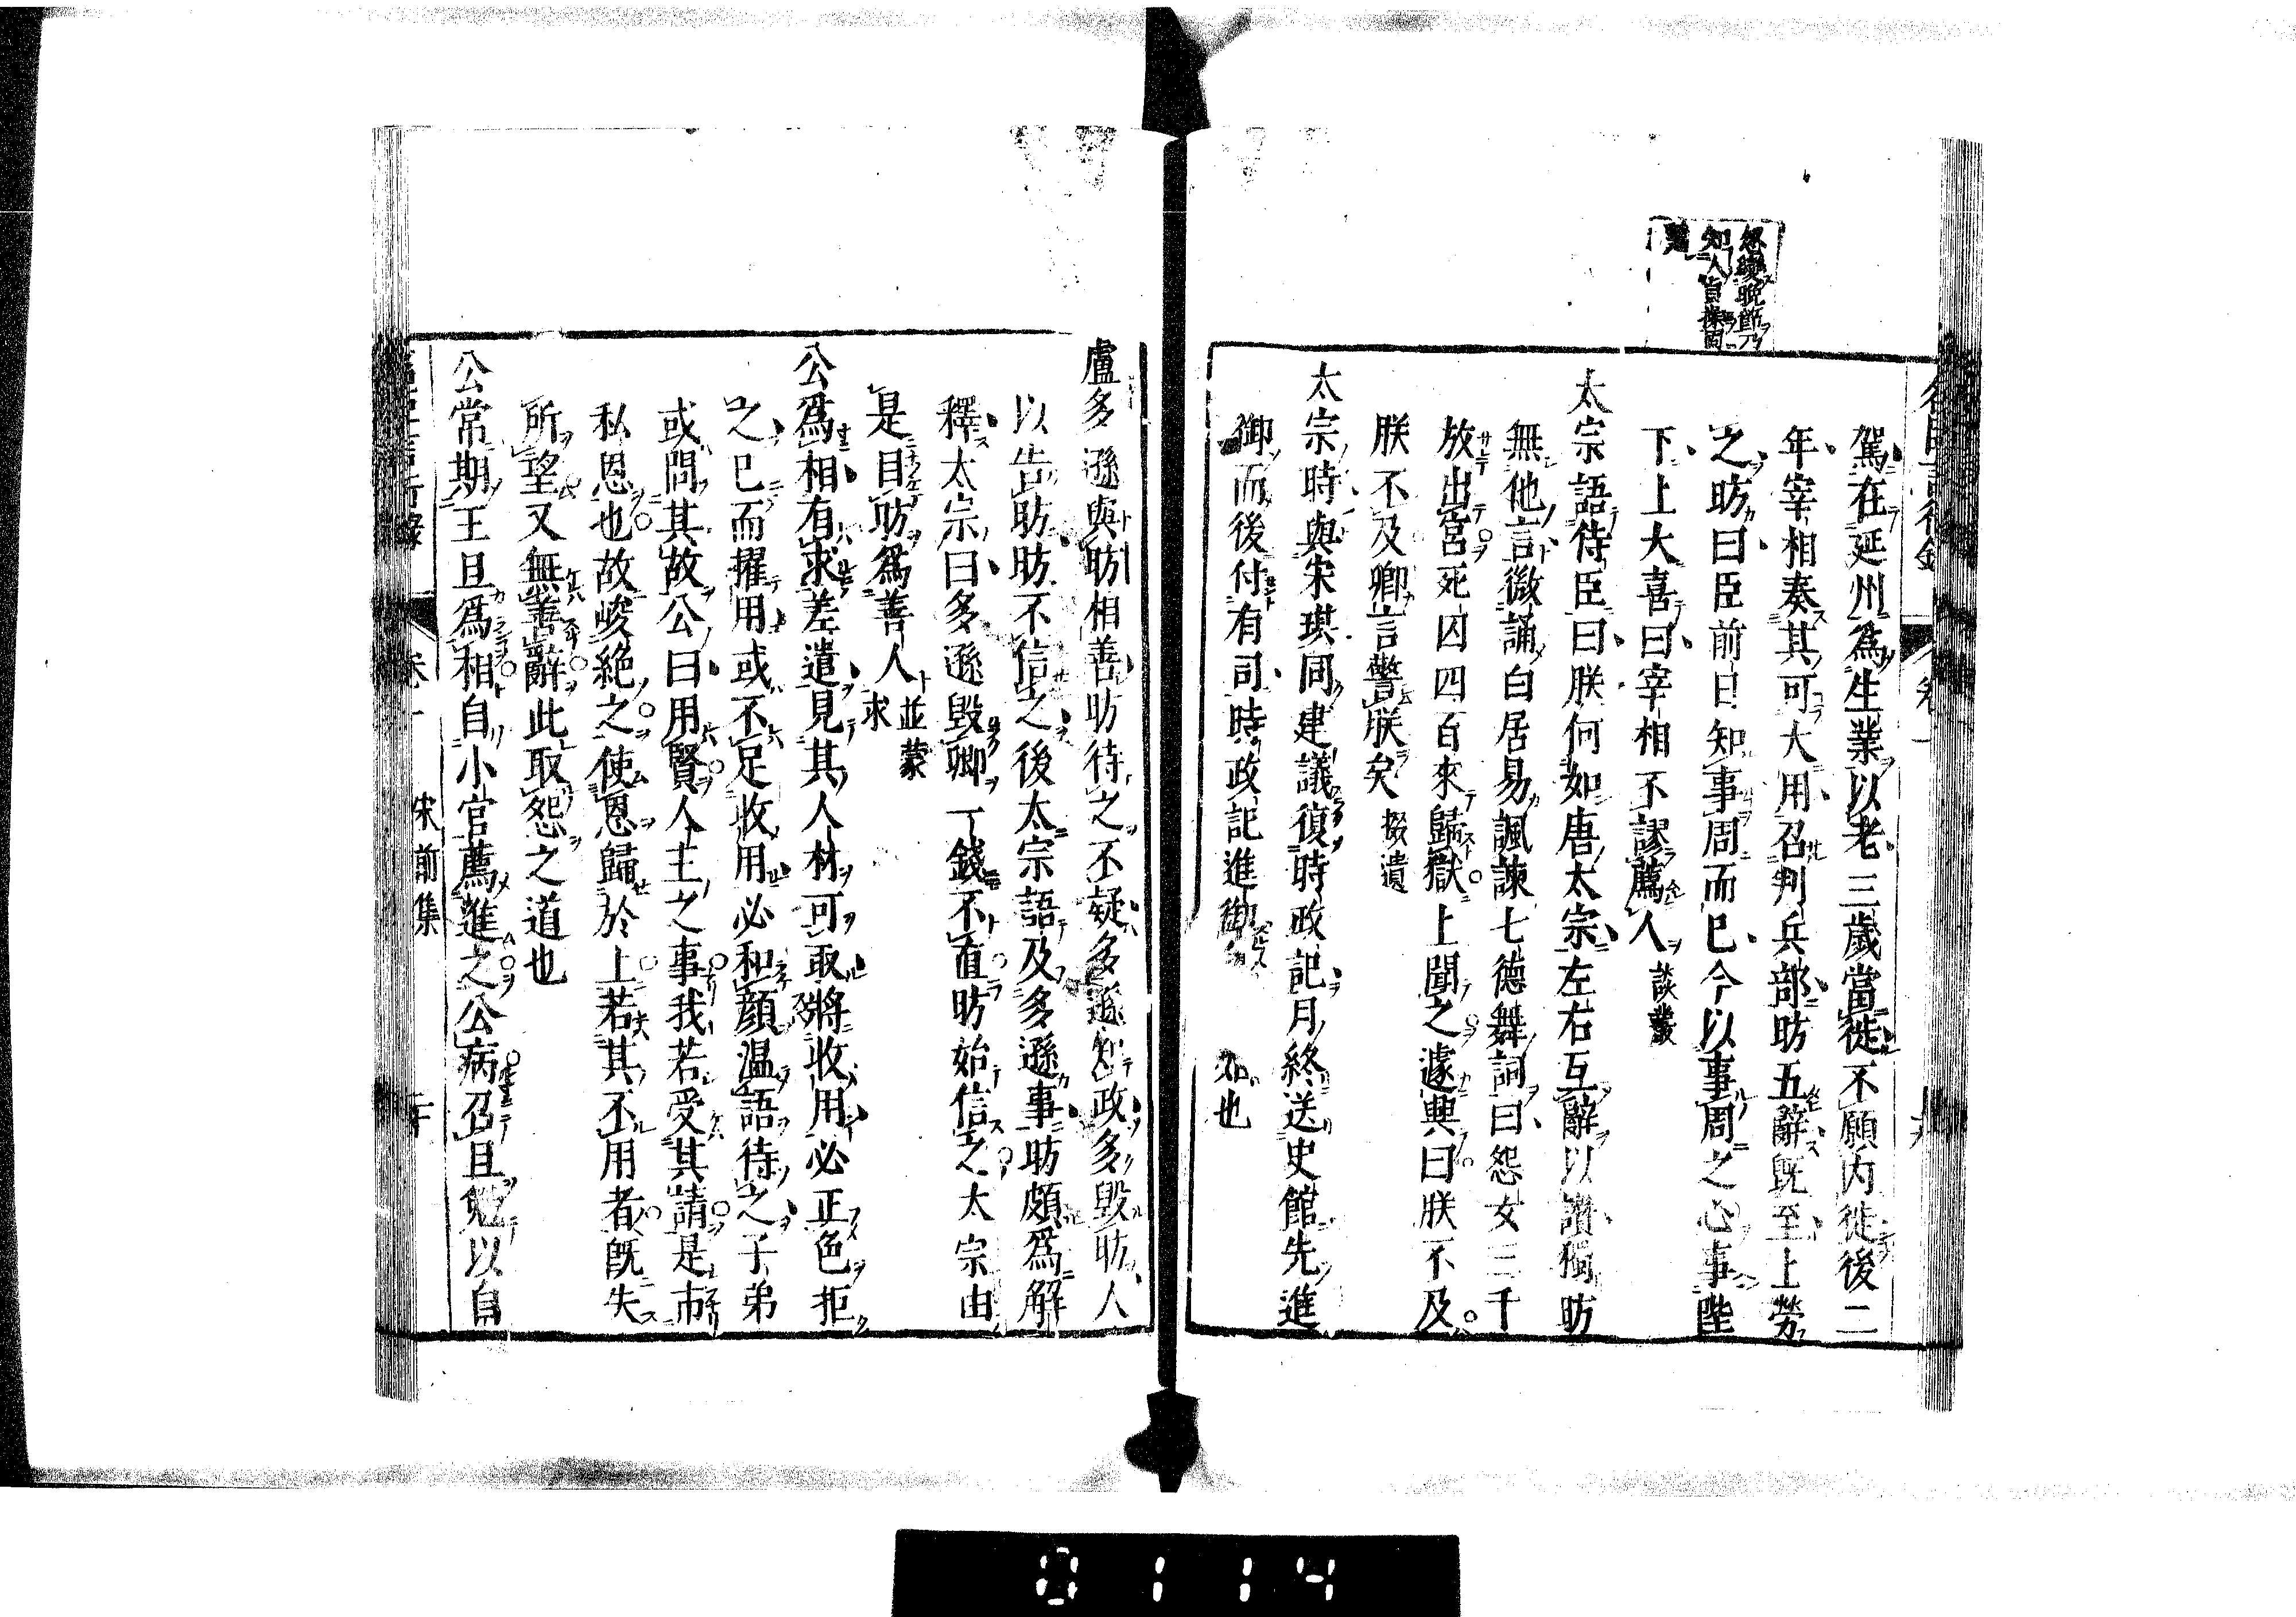 駕在延州爲生業以老三歲當徙不願内徙後二
年宰相奏其可大用召判兵部昉五辭既至上勞
之昉曰臣前日知事周而已今以事周之心事陛
下上大喜曰宰相不謬薦人 談叢
太宗語侍臣曰朕何如唐太宗左右互辭以讚獨昉
無他言微誦白居易諷諫七德舞詞曰怨女三千
放出宮死囚四百來歸獄上聞之遽興曰朕不及
朕不及卿言警朕矣 掇遺
太宗時與宋琪同建議復時政記月終送史館先進
御而後付有司時政記進御 也
盧多遜與昉相善昉待之不疑多遜知政多毀昉人
以告昉昉不信之後太宗語及多遜事昉頗爲解
釋太宗曰多遜毀卿一錢不直昉始信之太宗由
是目昉爲善人 並蒙求
公爲相有求差遣見其人材可取將收用必正色拒
之已而擢用或不足收用必和顏温語待之子弟
或問其故公曰用賢人主之事我若受其請是市
私恩也故峻絕之使恩歸於上若其不用者既失
所望又無善辭此取怨之道也
公常期王旦爲相自小官薦進之公病召旦勉以自
宋前集
0114